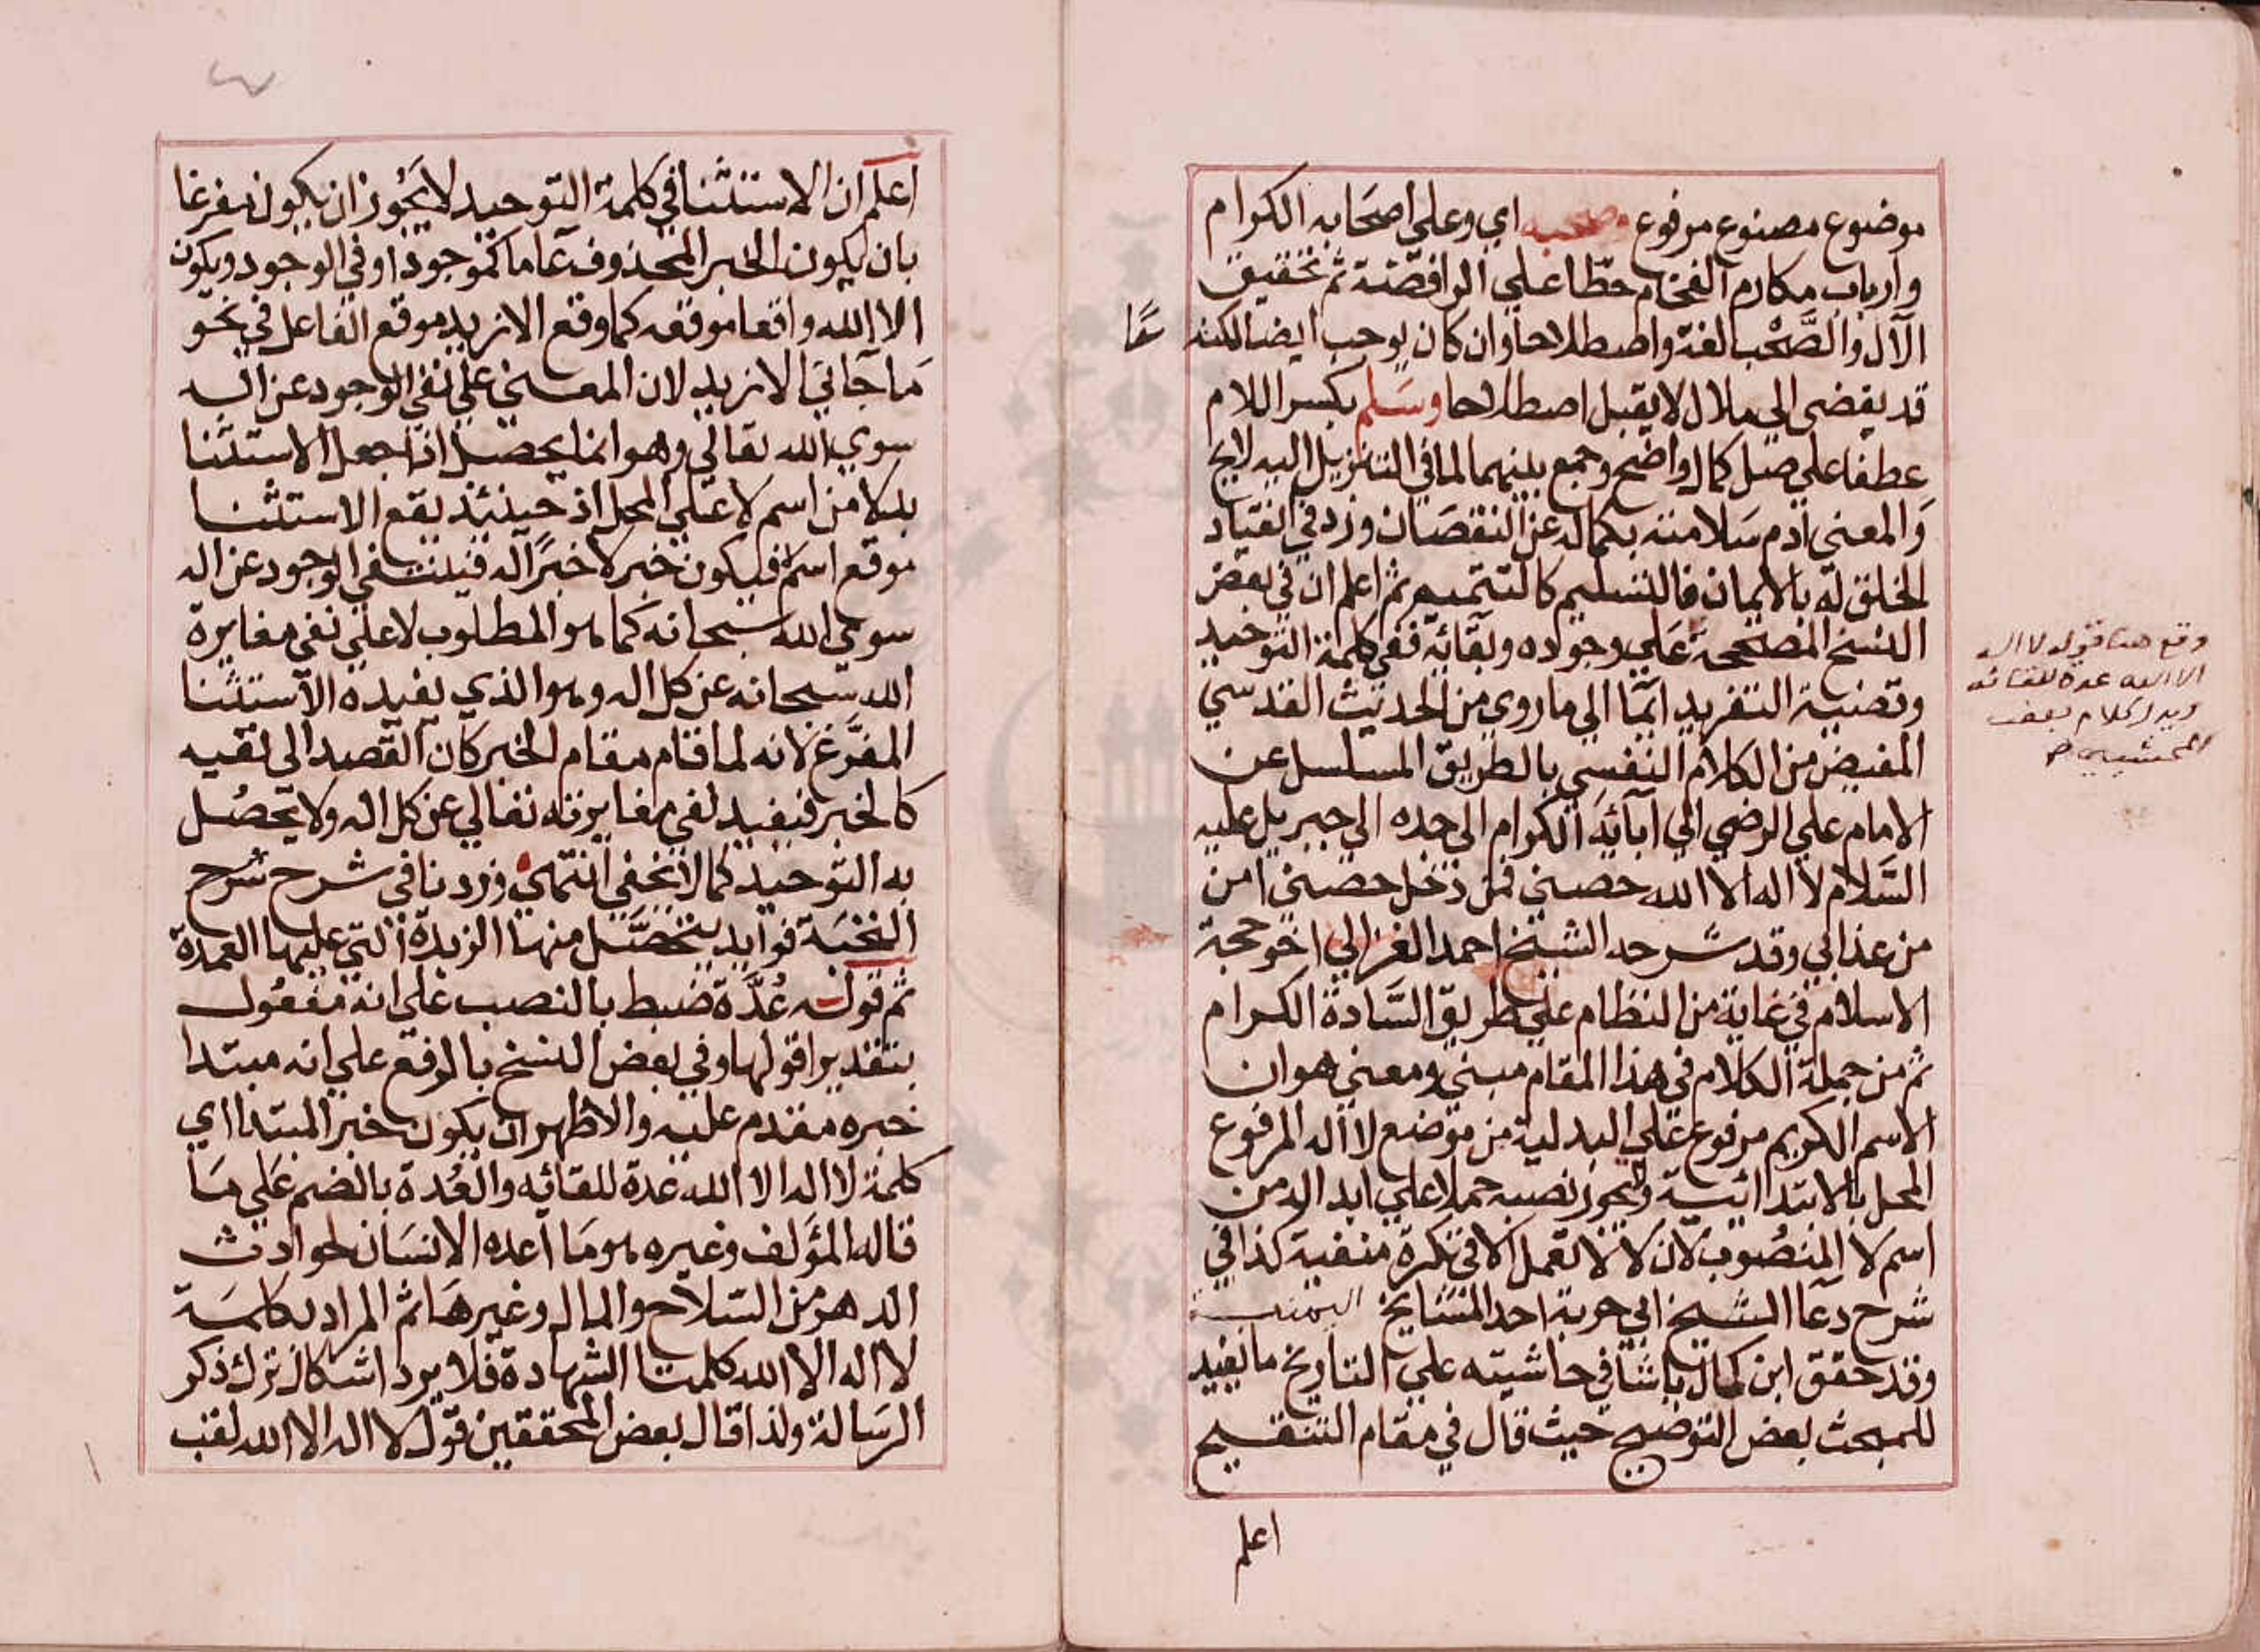 موضوع مصنوع مرفوع وصحبه اي وعلي اصحابه الكرام
وارباب مكارم الفخام حطا علي الرافضة ثم تحقيق
الآل والصَّحْب لغة واصطلاحا وان كان يوجب ايضا لكنه
قد يفضى الي ملال لا يقبل اصطلاحا وسَلم بكسر اللام
عطفا علي صل كمال واضح وجمع بينهما لما في التنزيل اليه لايح
وَالمعني ادم سَلامته بكماله عن النقصَان وزد في انقياد
الخلق له بالايمان فالتسليم كالتتميم ثم اعلم ان في بعض
النسخ المصححة عَلي وجوده وبقائه ففي كلمة التوحيد
وتصنية التفريد ايما الي ما روي من الحديث القدسي
المفيض من الكلام النفسي بالطريق المسلسل عن
الامام علي الرضي الي آبائه الكرام الى جده الي جبريل عليه
السَّلام لا اله الا الله حصني فمن دخل حصني امن
من عذابي وقد شرحه الشيخ احمد الغزالي اخو حجة
الاسلام في غاية من النظام علي طريق السَّادة الكرام
ثم من جملة الكلام في هذا المقام مبني ومعني هو ان
الاسم الكريم مرفوع علي البدلية من موضع لا اله المرفوع
المحل بالابتدائية ولا يجوز نصبه حملا علي ابداله من
اسم لا المنصُوب لان لا لا تعمل الا في نكرة منفية كذا في
شرح دعا الشيخ ابي حربة احد المشايخ اليمنية
وقد حقق ابن كمال باشا في حاشيته علي التاريخ ما يفيد
للمبحث بعض التوضيح حيث قال في مقام التنقيح
اعلم
وقع هنا قوله لا اله
الا الله عدة للقائه
ويدل كلام بعض
المحشيين
اعلم ان الاستثنا في كلمة التوحيد لا يَجُوز ان يكون مفرغا
بان يكون الخبر المحذوف عاما كموجود او في الوجود ويكون
الا الله واقعا موقعه كما وقع الا زيد موقع الفاعل في نحو
مَا جاني الا زيد لان المعني علي نفي الوجود عن اله
سوي الله تعالي وهو انما يحصل اذا جعل الاستثنا
بدلا من اسم لا علي المحل اذ حينئذ يقع الاستثنا
موقع اسم لا فيكون خبر لا خبرًا له فينتفي الوجود عن اله
سوي الله سبحانه كما هو المطلوب لا علي نفي مغايرة
الله سبحانه عن كل اله وهو الذي يفيده الاستثنا
المفرَّغ لانه لما قام مقام الخبر كان القصد الى نفيه
كالخبر فيفيد نفي مغايرته تعالي عن كل اله ولا يحصُل
به التوحيد كما لا يخفي انتهي وزدنا في شرح شرح
النخبة فوايد يتحصَّل منها الزبدة التي عليها العمدة
ثم قوله عُدَّة ضبط بالنصب علي انه مفعُول
بتقدير اقولها وفي بعض النسخ بالرفع علي انه مبتدا
خبره مقدم عليه والاظهر ان يكون خبر المبتدا اي
كلمة لا اله الا الله عدة للقائه والعُدة بالضم عَلي مَا
قاله المؤلف وغيره هو مَا اعده الانسَان لحوادث
الدهر من السّلاح والمال وغيرهَا ثم المراد بكلمة
لا اله الا الله كلمتا الشهادة فلا يرد اشكال ترك ذكر
الرسَالة ولذا قال بعض المحققين قول لا اله الا الله لقب